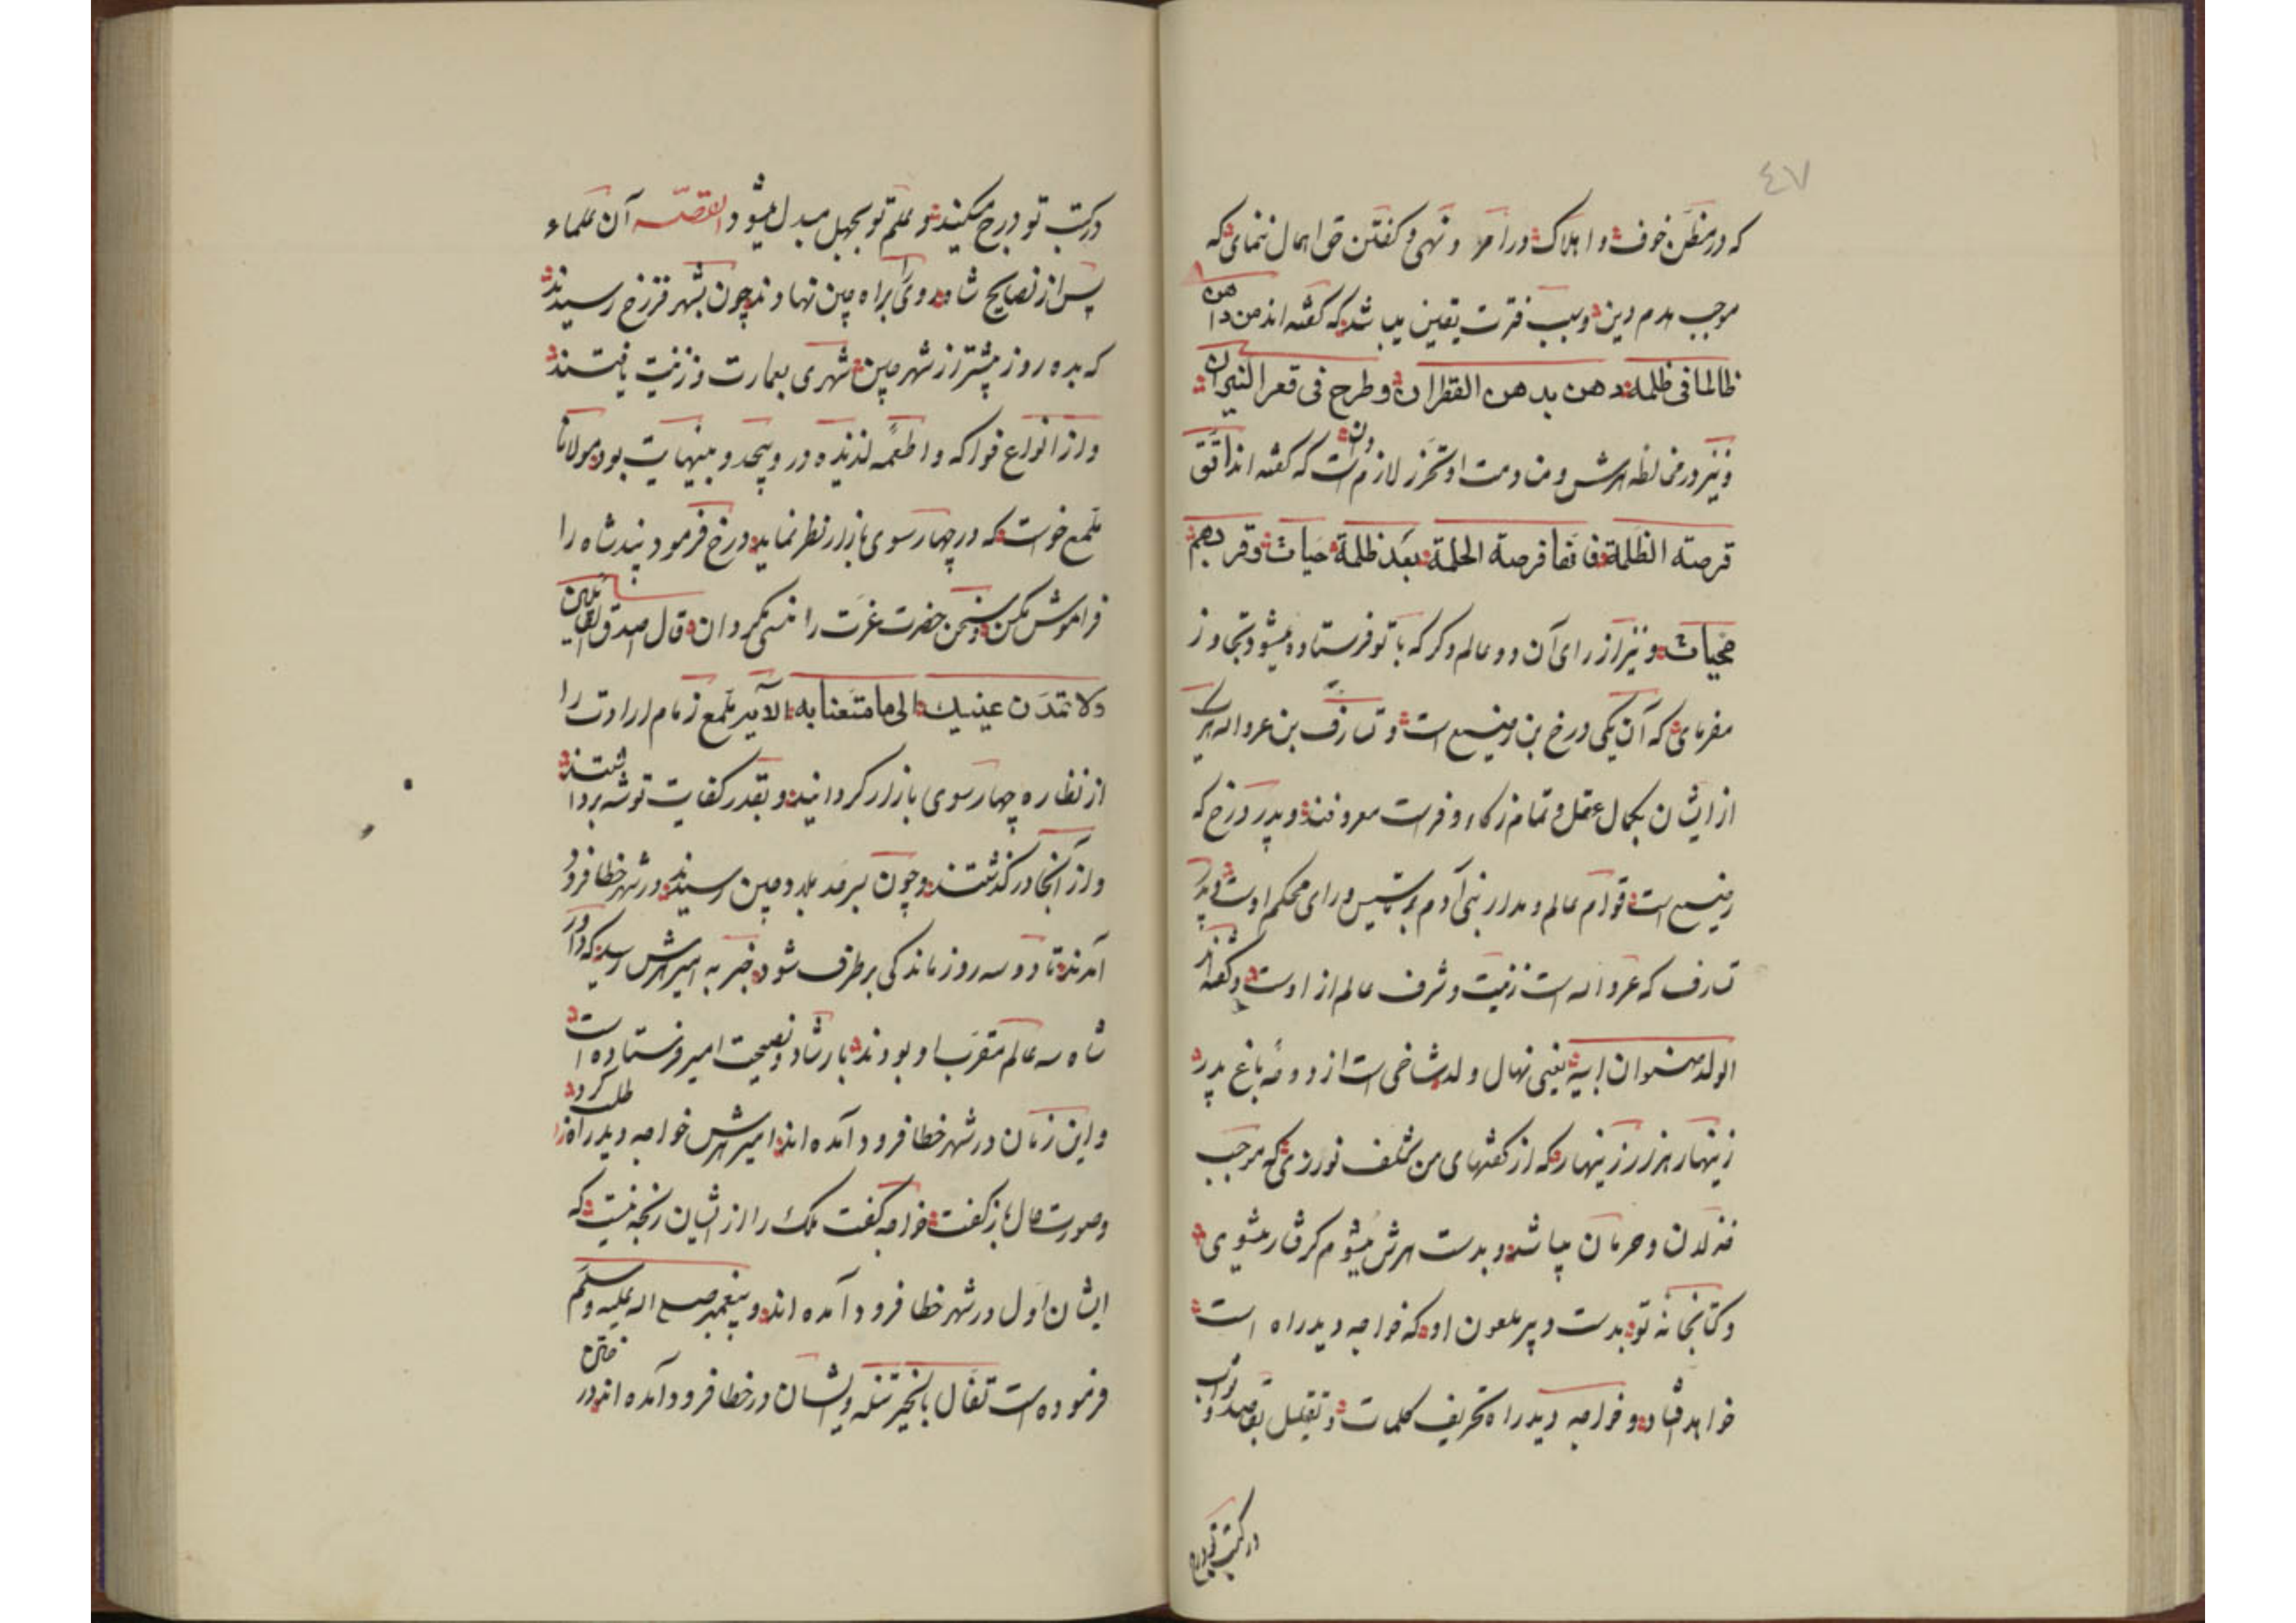 ٤٧
که در مظن خوف و اهلاک در امر و نهی و کفتن حق اهمال ننمای که
موجب هدم دین و سبب فترت یقین میباشد که کفته اند من داهن
ظالما فی ظلمه دهن بدهن القطران وطرح فی قعر النیران
و نیز در مخالطه هرش و منادمت او تحرز لازم است که کفته اند اتق
قرصته الظلمة فانها قرصة الحلمة بعد ظلمة حیات و قر دهم
محیات و نیز از رای آن دو عالم دکر که با تو فرستاده میشود تجاوز
مفرمای که آن یکی درخ بن رضیع است و تارف بن عرواله هر یک
از ایشان بکمال عقل و تمام زکاء و فراست معروفند و پدر درخ که
رضیع است قوام عالم و مدار بنی آدم بتاسیس و رای محکم اوست و پدر
تارف که عرواله است زینت و شرف عالم از اوست و کفته اند
الولد صنوان ابیه یعنی نهال ولد شاخی است از دوحه باغ پدر
زینهار هزار زینهار که از کفتهای من تخلف نورزی که موجب
خذلان و حرمان میباشد و بدست هرش میشوم کرفتار میشوی
و کتابخانه تو بدست دبیر ملعون او که خواجه دیدراه است
خواهد افتاد و خواجه دیدراه تحریف کلمات و تقلیل بقصد ثواب
در کتب تو درج
در کتب تو درج میکند و علم تو بجهل مبدل میشود القصّه آن علماء
پس از نصایح شاه روی را براه چین نهادند چون بشهر فرزخ رسیدند
که بده روز پیشتر از شهر چین شهری بعمارت و زینت یافتند
و از انواع فواکه و اطعمه لذیذه در و بیحد و بینهایت بود مولانا
ملمع خواست که در چهار سوی بازار نظر نماید درخ فرمود پند شاه را
فراموش مکن و سخن حضرت عزت را منسی مکردان قال اصدق القائلین
ولا تمدن عینیك الی ما متعنا به الآیه ملمع زمام ارادت را
از نظاره چهار سوی بازار کردانید و بقدر کفایت توشه برداشتند
و از آنجا درکذشتند و چون بسرحد بلاد چین رسیدند در شهر خطا فرود
آمدند تا دو سه روز ماندکی برطرف شود خبر به امیر هرش رسید که داور
شاه سه عالم مقرب او بودند بارشاد و نصیحت امیر فرستاده است
و این زمان در شهر خطا فرود آمده اند امیر هرش خواجه دیدراه را طلب کرد
و صورت حال باز کفت خواجه کفت ملک را از ایشان رنجه نیست که
ایشان اول در شهر خطا فرود آمده اند و پیغمبر صلی اله علیه وسلم
فرموده است تفال بالخیر تنله و ایشان در خطا فرود آمده اند در ختن